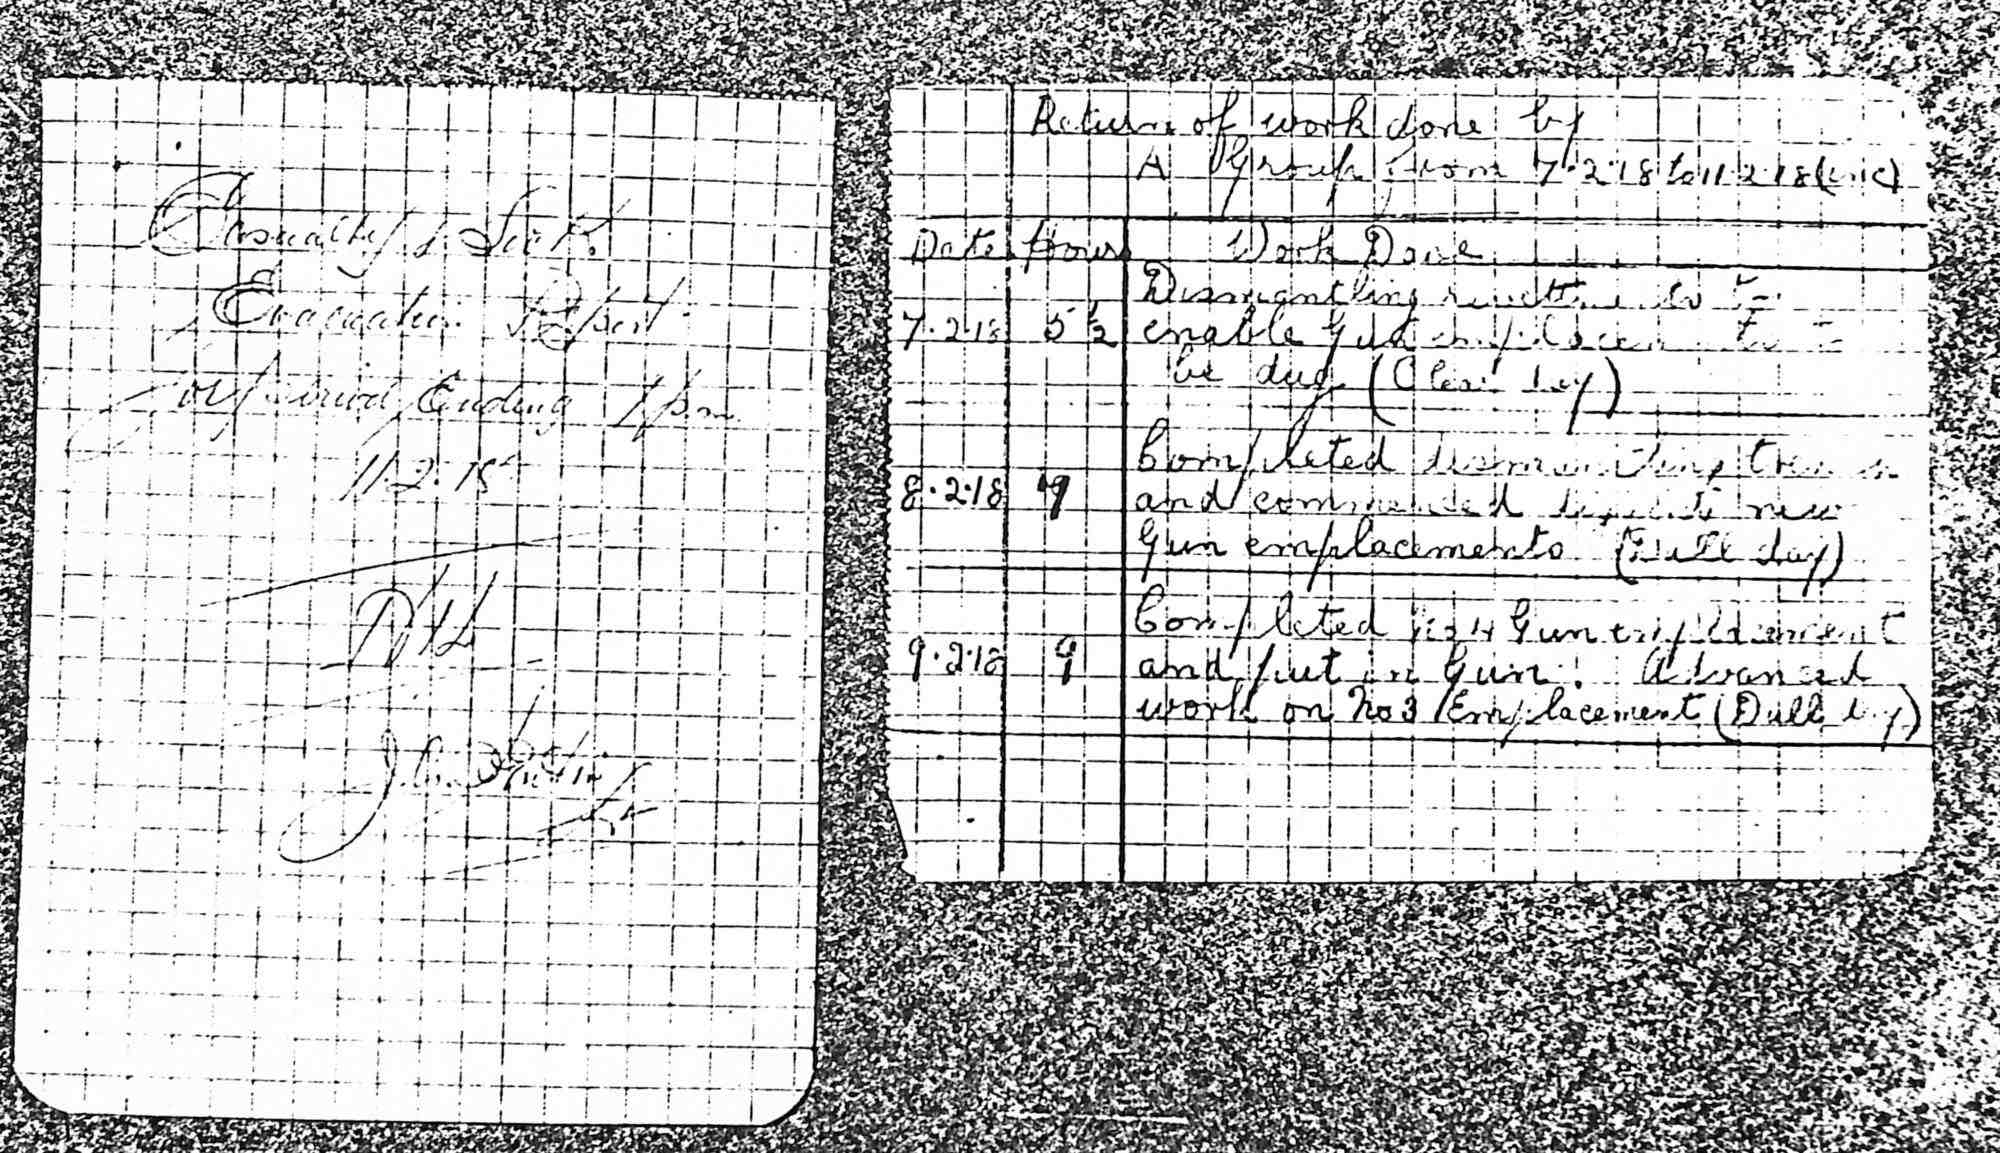 Casualty & Sick
Evacuation Report
for period Ending 1pm
11.2.18
Nil
J.C.
Return of work done by
A Group from 7.2.18 to 11.2.18 (inc)
Date Hours Work Done
Dismantling to
7.2.18 5½ enable Gun emplacements to
be dug (Clear day)
Completed dismantling
8.2.18 9 and commenced new
Gun emplacements (Dull day)
Completed No 4 Gun emplacement
9.2.18 9 and put in Gun. Advanced
work on No 3 Emplacement (Dull day)